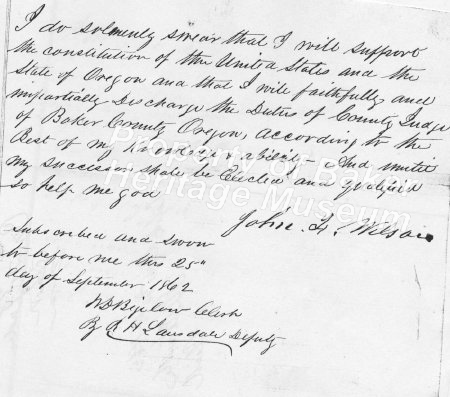 I do solmenly swear that I will support
the constitution of the United States and the
State of Oregon and that I will faithfully and
impartially Discharge the Duties of County Judge
of Baker County Oregon, according to the
Best of my Knowledge & ability And until
my successor shall be Elected and qualified
so help me god
John L. Wilson
Subscribed and sworn
to before me this 25"
day of September 1862
WD Bigelow Clerk
By R H Lansdale Deputy
Property of Baker
Heritage Museum